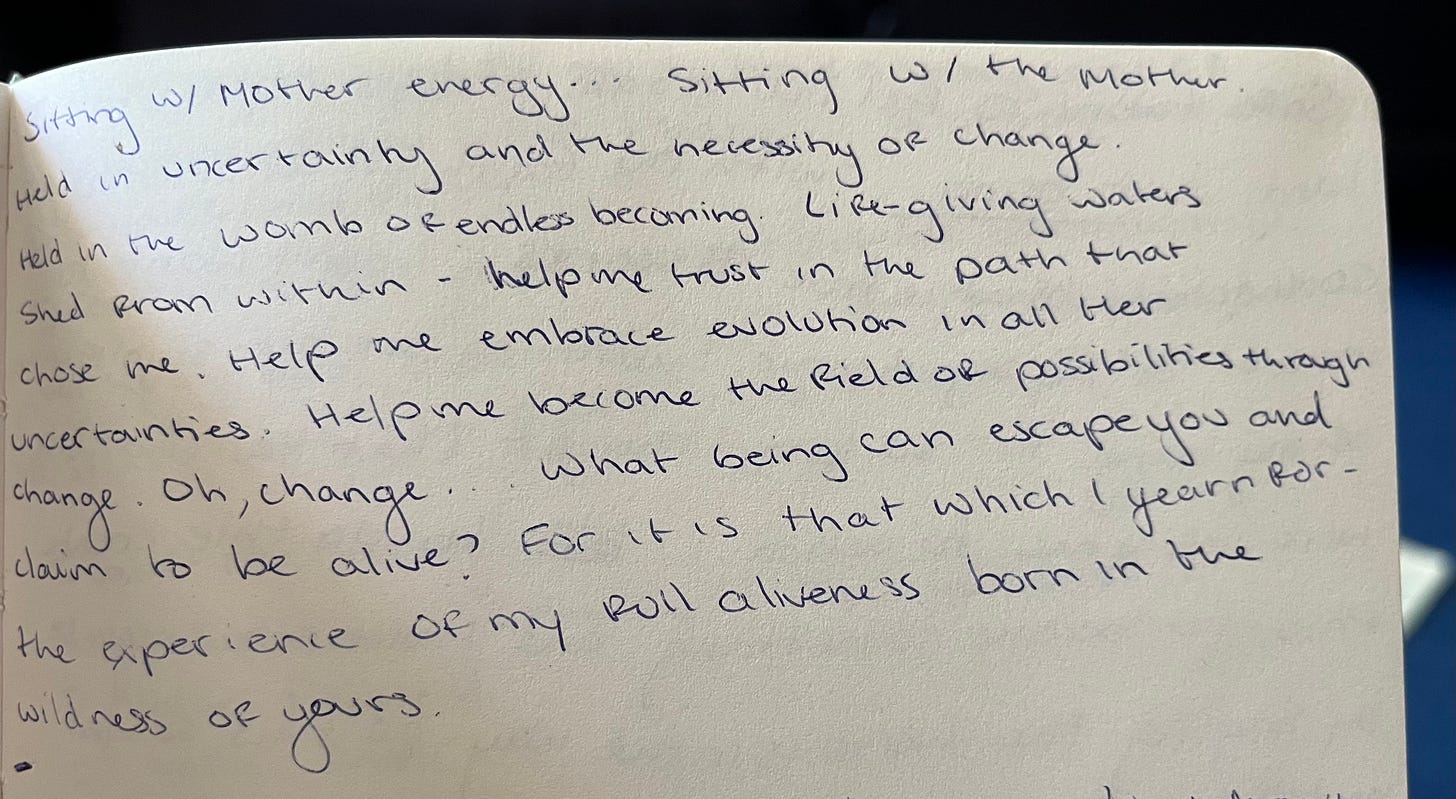 Sitting w/ Mother energy... Sitting w/ the Mother.
Held in uncertainty and the necessity of change.
Held in the womb of endless becoming. Life-giving waters
shed from within - help me trust in the path that
chose me. Help me embrace evolution in all Her
uncertainties. Help me become the field of possibilities through
change. Oh, change... What being can escape you and
claim to be alive? For it is that which I yearn for-
the experience of my full aliveness born in the
wildness of yours.